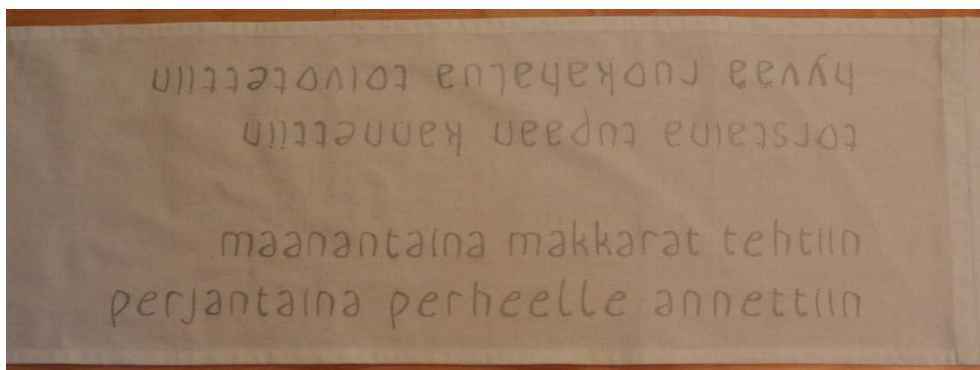 torstaina tupaan kannettiin
hyvää ruokahalua toivotettiin
maanantaina makkarat tehtiin
perjantaina perheelle annettiin